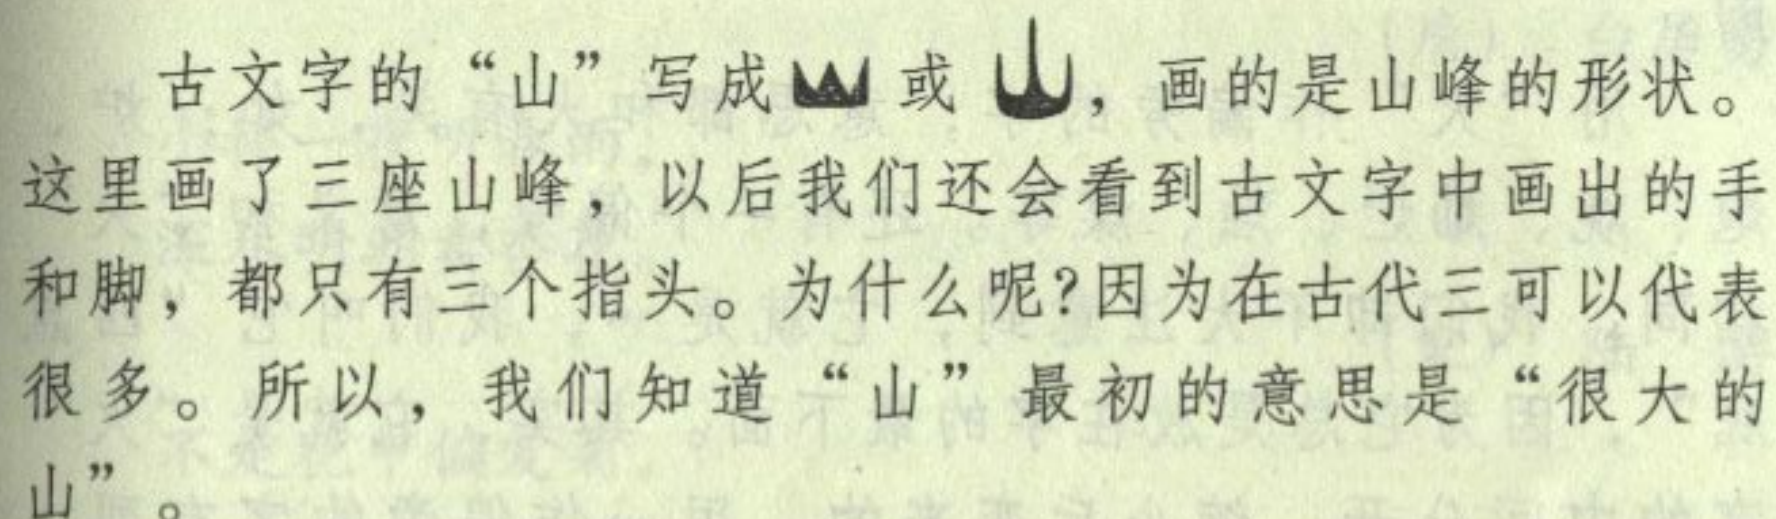 古文字的“山”写成或，画的是山峰的形状。
这里画了三座山峰，以后我们还会看到古文字中画出的手
和脚，都只有三个指头。为什么呢?因为在古代三可以代表
很多。所以，我们知道“山”最初的意思是“很大的
山”。